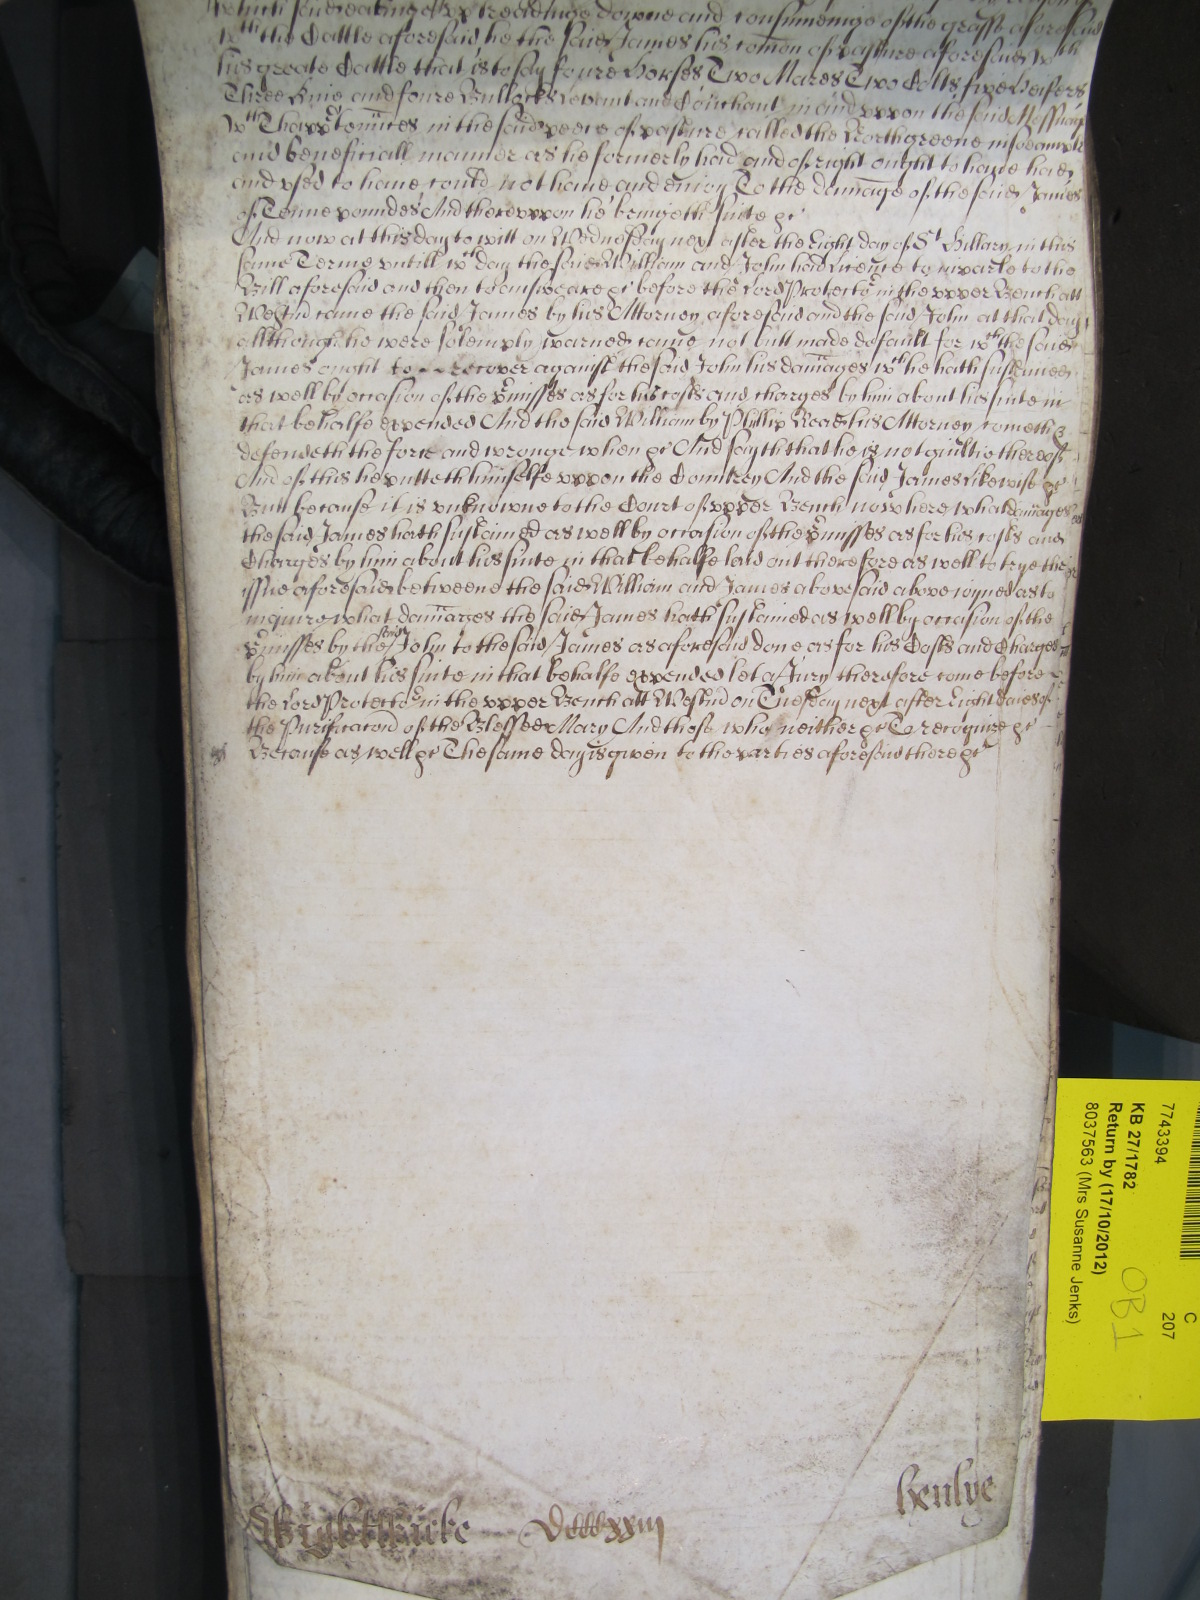 treadinge downe and consumeinge of the grasse aforesaid
wth the Cattle aforesaid he the said James his comon of pasture aforesaid wth
his greate Cattle that is to say foure Horses Two Mares Two Colts five Heifers
Three kine and foure Bullocks Levant and Couchant in and vppon the said Messuage
wth Thappurtennces in the said peece of pasture called the Northgreene in soe ample
and beneficiall manner as he formerly had and of right ought to have had
and vsed to have could not have and enioy To the damage of the said James
of Tenne poundes And therevppon he bringeth suite &c
And now at this day to witt on Wednesday next after the Eight day of St Hillary in this
same Terme vntill wch day the said William and John had licence to imparle to the
Bill aforesaid and then to answeare &c before the Lord Protector in the vpper Bench att
Westmr came the said James by his Attorney aforesaid and the said John at that day
allthough he were solemply warned came not but made default for wch the said
James ought to recover against the said John his damages wch he hath susteined
as well by occasion of the pmisses as for his costs and charges by him about his suite in
that behalfe expended And the said William by Phillip Read his Attorney cometh &
defendeth the force and wronge when &c And sayth that he is not guiltie thereof
And of this he putteth himselfe vppon the Countrey And the said James likewise &c
But because it is vnknowne to the Court of vpper Bench now here what damages
the said James hath sustained as well by occasion of the pmisses as for his costs and
Charges by him about his suite in that behalfe laid out therefore as well to trye the
issue aforesaid betweene the said William and James abovesaid above ioyned as to
inquire what damages the said James hath sustained as well by occasion of the
pmisses by the said John to the said James as aforesaid done as for his Costs and Charges
by him about his suite in that behalfe expended let a Jury therefore come before
the Lord Protector in the vpper Bench att Westmr on Tuesday next after Eight daies of
the Purificacon of the Blessed Mary And those who neither &c To recognize &c
Because as well &c The same day is given to the parties aforesaid there &c
Wightwicke Henlye
7743394
C
207
KB 27/1782
Return by (17/10/2012)
8037563 (Mrs Susanne Jenks)
OB1